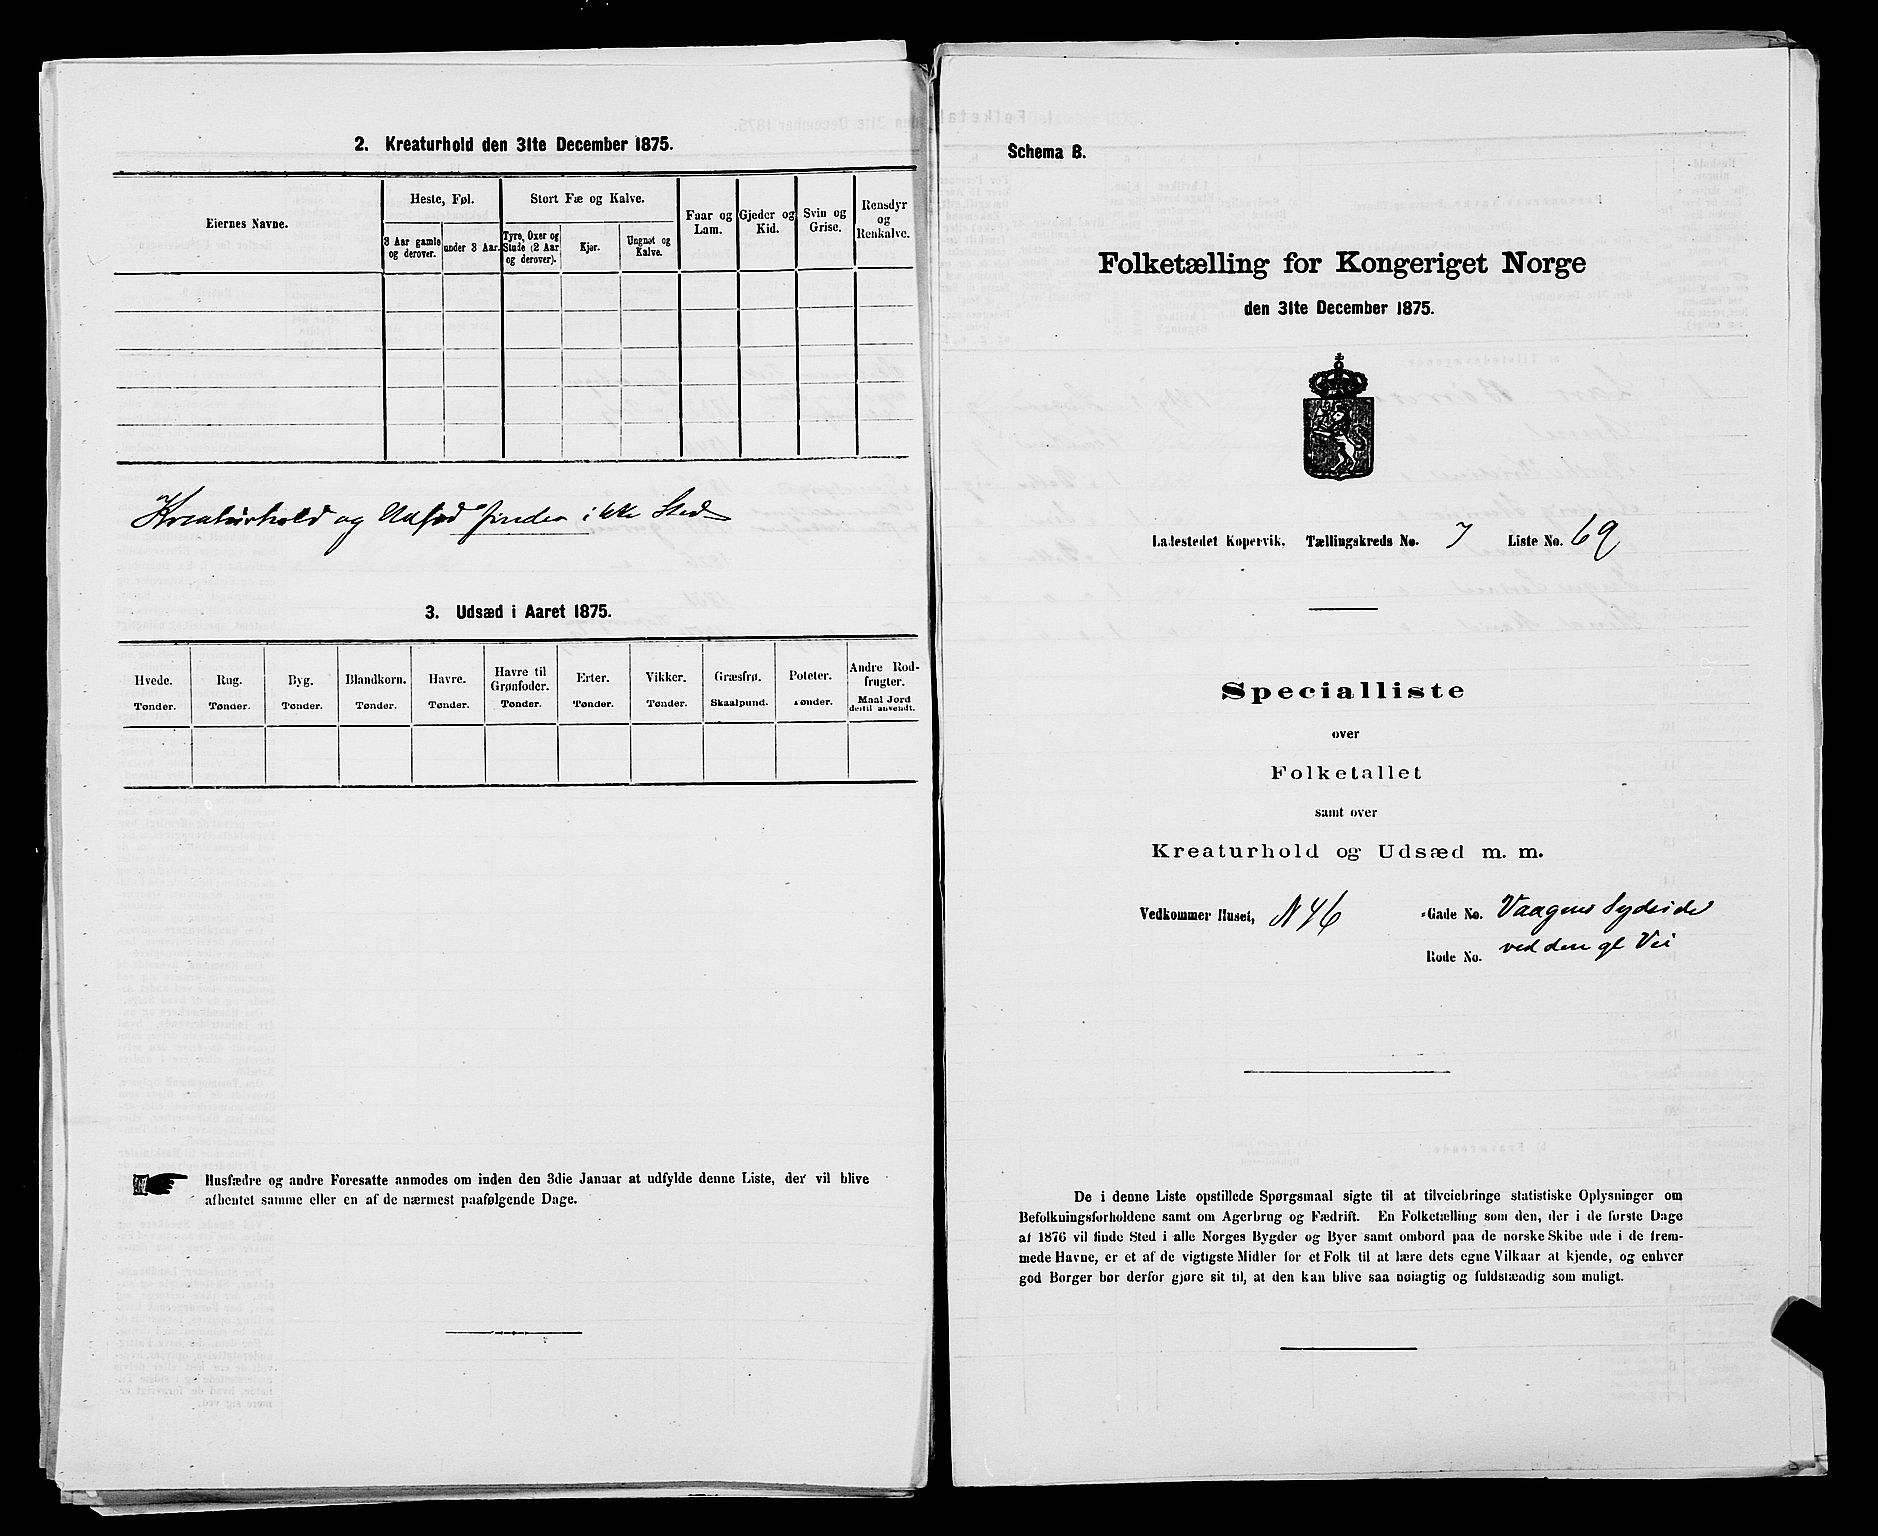 2. Kreaturhold den 31te December 1875.
Eiernes Navne.
Heste, Føl.
3 Aar gamle og derover.
under 3 Aar.
Stort Fæ og Kalve.
Tyre, Oxer og Stude (2 Aar og derover).
Kjør.
Ungnøt og Kalve.
Faar og Lam.
Gjeder og Kid.
Svin og Grise.
Rensdyr og Renkalve.
Kreaturhold og Udsæd finder ikke Sted
3. Udsæd i Aaret 1875.
Hvede. Tønder.
Rug. Tønder.
Byg. Tønder.
Blandkorn. Tønder.
Havre. Tønder.
Havre til Grønfoder. Tønder.
Erter. Tønder.
Vikker. Tønder.
Græsfrø. Skaalpund.
Poteter. Tønder.
Andre Rodfrugter. Maal Jord dertil anvendt.
Husfædre og andre Foresatte anmodes om inden den 3die Januar at udfylde denne Liste, der vil blive
afhentet samme eller en af de nærmest paafølgende Dage.
Schema B.
Folketælling for Kongeriget Norge
den 31te December 1875.
Ladestedet Kopervik. Tællingskreds No. 7 Liste No. 69
Specialliste
over
Folketallet
samt over
Kreaturhold og Udsæd m. m.
Vedkommer Huset, N 46 Gade No. Vaagens Sydside
Rode No. ved den gl Vei
De i denne Liste opstillede Spørgsmaal sigte til at tilveiebringe statistiske Oplysninger om
Befolkningsforholdene samt om Agerbrug og Fædrift. En Folketælling som den, der i de første Dage
af 1876 vil finde Sted i alle Norges Bygder og Byer samt ombord paa de norske Skibe ude i de frem-
mede Havne, er et af de vigtigste Midler for et Folk til at lære dets egne Vilkaar at kjende, og enhver
god Borger bør derfor gjøre sit til, at den kan blive saa nøiagtig og fuldstændig som muligt.